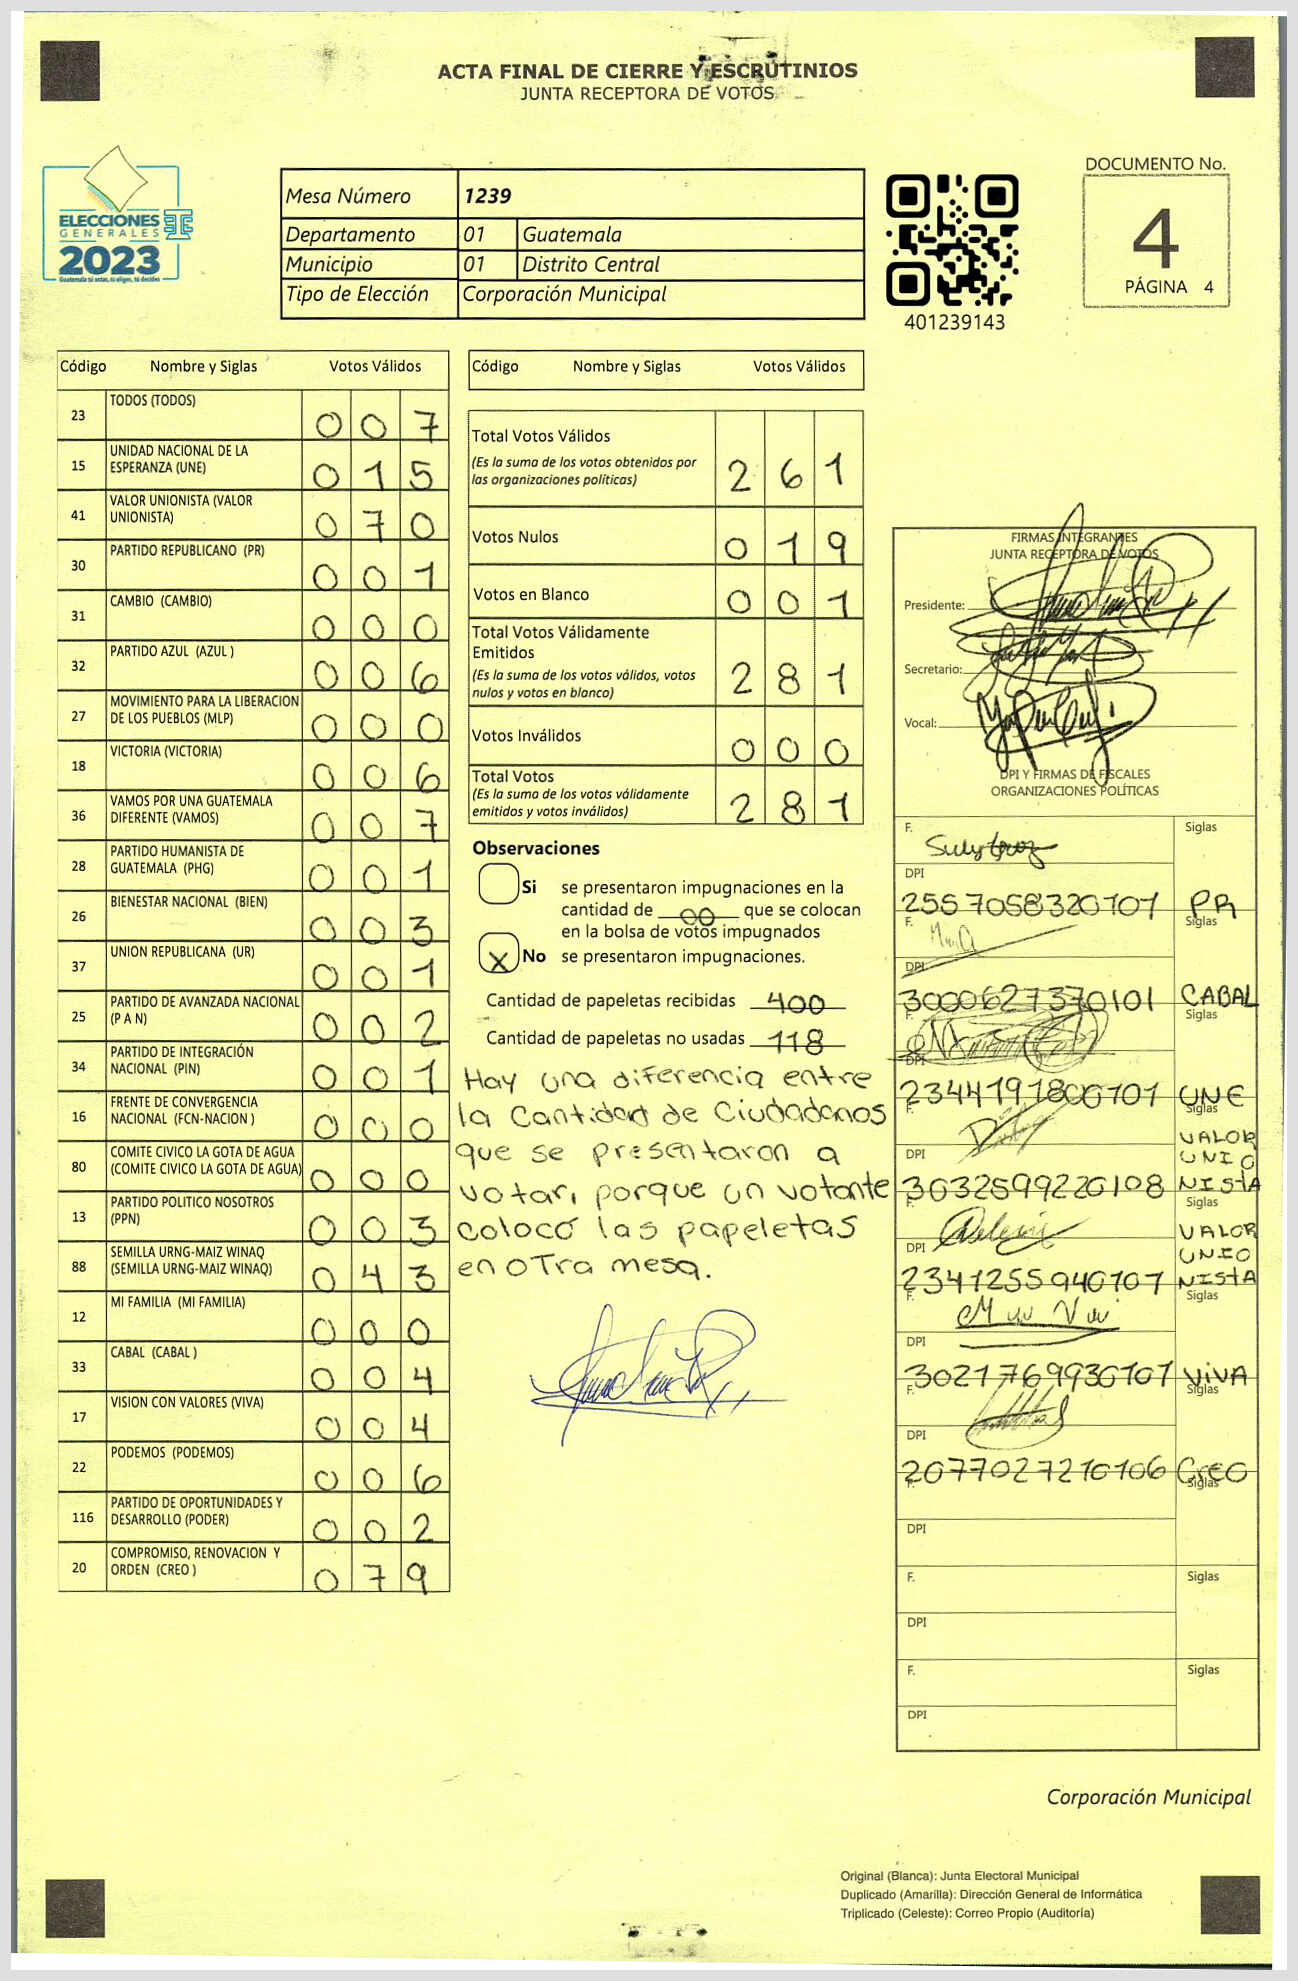 ACTA FINAL DE CIERRE Y ESCRUTINIOS
JUNTA RECEPTORA DE VOTOS
ELECCIONES
GENERALES
2023
Guatemala tú votas, tú eliges, tú decides
Mesa Número 1239
Departamento 01 Guatemala
Municipio 01 Distrito Central
Tipo de Elección Corporación Municipal
401239143
DOCUMENTO No.
4
PÁGINA 4
Código Nombre y Siglas Votos Válidos
23 TODOS (TODOS) 0 0 7
15 UNIDAD NACIONAL DE LA ESPERANZA (UNE) 0 1 5
41 VALOR UNIONISTA (VALOR UNIONISTA) 0 7 0
30 PARTIDO REPUBLICANO (PR) 0 0 1
31 CAMBIO (CAMBIO) 0 0 0
32 PARTIDO AZUL (AZUL ) 0 0 6
27 MOVIMIENTO PARA LA LIBERACION DE LOS PUEBLOS (MLP) 0 0 0
18 VICTORIA (VICTORIA) 0 0 6
36 VAMOS POR UNA GUATEMALA DIFERENTE (VAMOS) 0 0 7
28 PARTIDO HUMANISTA DE GUATEMALA (PHG) 0 0 1
26 BIENESTAR NACIONAL (BIEN) 0 0 3
37 UNION REPUBLICANA (UR) 0 0 1
25 PARTIDO DE AVANZADA NACIONAL (P A N) 0 0 2
34 PARTIDO DE INTEGRACIÓN NACIONAL (PIN) 0 0 1
16 FRENTE DE CONVERGENCIA NACIONAL (FCN-NACION ) 0 0 0
80 COMITE CIVICO LA GOTA DE AGUA (COMITE CIVICO LA GOTA DE AGUA) 0 0 0
13 PARTIDO POLITICO NOSOTROS (PPN) 0 0 3
88 SEMILLA URNG-MAIZ WINAQ (SEMILLA URNG-MAIZ WINAQ) 0 4 3
12 MI FAMILIA (MI FAMILIA) 0 0 0
33 CABAL (CABAL ) 0 0 4
17 VISION CON VALORES (VIVA) 0 0 4
22 PODEMOS (PODEMOS) 0 0 6
116 PARTIDO DE OPORTUNIDADES Y DESARROLLO (PODER) 0 0 2
20 COMPROMISO, RENOVACION Y ORDEN (CREO ) 0 7 9
Código Nombre y Siglas Votos Válidos
Total Votos Válidos 2 6 1
(Es la suma de los votos obtenidos por
las organizaciones políticas)
Votos Nulos 0 1 9
Votos en Blanco 0 0 1
Total Votos Válidamente
Emitidos 2 8 1
(Es la suma de los votos válidos, votos
nulos y votos en blanco)
Votos Inválidos 0 0 0
Total Votos 2 8 1
(Es la suma de los votos válidamente
emitidos y votos inválidos)
Observaciones
Si se presentaron impugnaciones en la
cantidad de 00 que se colocan
en la bolsa de votos impugnados
X No se presentaron impugnaciones.
Cantidad de papeletas recibidas 400
Cantidad de papeletas no usadas 118
Hay una diferencia entre
la Cantidad de Ciudadanos
que se presentaron a
votar, porque un votante
colocó las papeletas
en otra mesa.
FIRMAS INTEGRANTES
JUNTA RECEPTORA DE VOTOS
Presidente:
Secretario:
Vocal:
DPI Y FIRMAS DE FISCALES
ORGANIZACIONES POLÍTICAS
F. Siglas
DPI
2557058320101 PR
F. Siglas
DPI
3000627370101 CABAL
F. Siglas
DPI
2344191800101 UNE
F. Siglas
DPI VALOR
UNIO
3032599220108 NISTA
F. Siglas
DPI VALOR
UNIO
2341255940101 NISTA
F. Siglas
DPI
3021769930101 VIVA
F. Siglas
DPI
2077027210106 CreO
F. Siglas
DPI
F. Siglas
DPI
F. Siglas
DPI
Corporación Municipal
Original (Blanca): Junta Electoral Municipal
Duplicado (Amarilla): Dirección General de Informática
Triplicado (Celeste): Correo Propio (Auditoría)